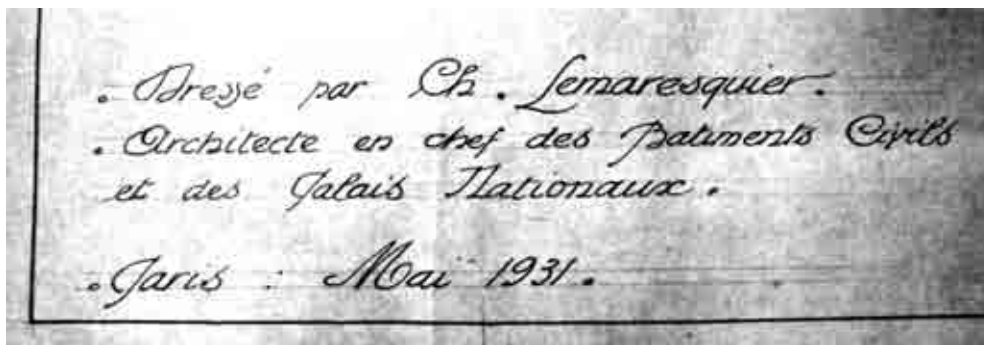 . Dressé par Ch. Lemaresquier.
. Architecte en chef des Batiments Civils
et des Palais Nationaux.
. Paris : Mai 1931.